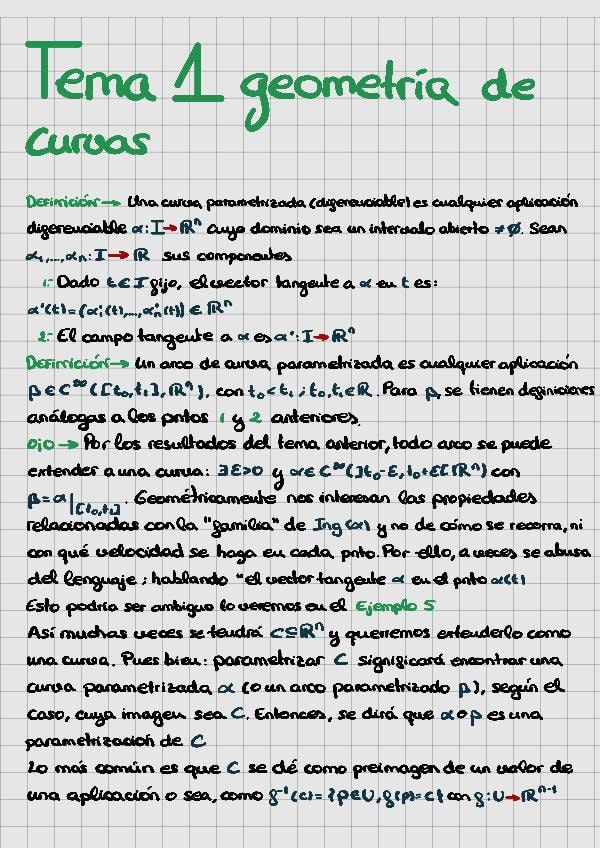 Tema 1 geometría de
curvas
Definición→ Una curva parametrizada (diferenciable) es cualquier aplicación
diferenciable α: I→ℝⁿ cuyo dominio sea un intervalo abierto ≠∅. Sean
α₁,...,αₙ: I→ℝ sus componentes
1.- Dado t∈I fijo, el vector tangente a α en t es:
α'(t)=(α₁'(t),...,αₙ'(t)) ∈ ℝⁿ
2.- El campo tangente a α es α': I→ℝⁿ
Definición→ Un arco de curva parametrizada es cualquier aplicación
β∈C^∞([t₀,t₁],ℝⁿ), con t₀<t₁; t₀,t₁∈ℝ. Para β, se tienen definiciones
análogas a los pntos 1 y 2 anteriores.
OJO→ Por los resultados del tema anterior, todo arco se puede
extender a una curva: ∃ε>0 y α∈C^∞(]t₀-ε,t₀+ε[,ℝⁿ) con
β=α|[t₀,t₁]. Geométricamente nos interesan las propiedades
relacionadas con la "familia" de Img(α) y no de cómo se recorra, ni
con qué velocidad se haga en cada pnto. Por ello, a veces se abusa
del lenguaje; hablando "el vector tangente α en el pnto α(t)
Esto podría ser ambiguo lo veremos en el Ejemplo 5
Así muchas veces se tendrá C⊆ℝⁿ y querremos entenderlo como
una curva. Pues bien: parametrizar C significará encontrar una
curva parametrizada α (o un arco parametrizado β), según el
caso, cuya imagen sea C. Entonces, se dirá que α o β es una
parametrización de C
Lo más común es que C se dé como preimagen de un valor de
una aplicación o sea, como f⁻¹(c)={p∈U, f(p)=c} con f: U→ℝⁿ⁻¹